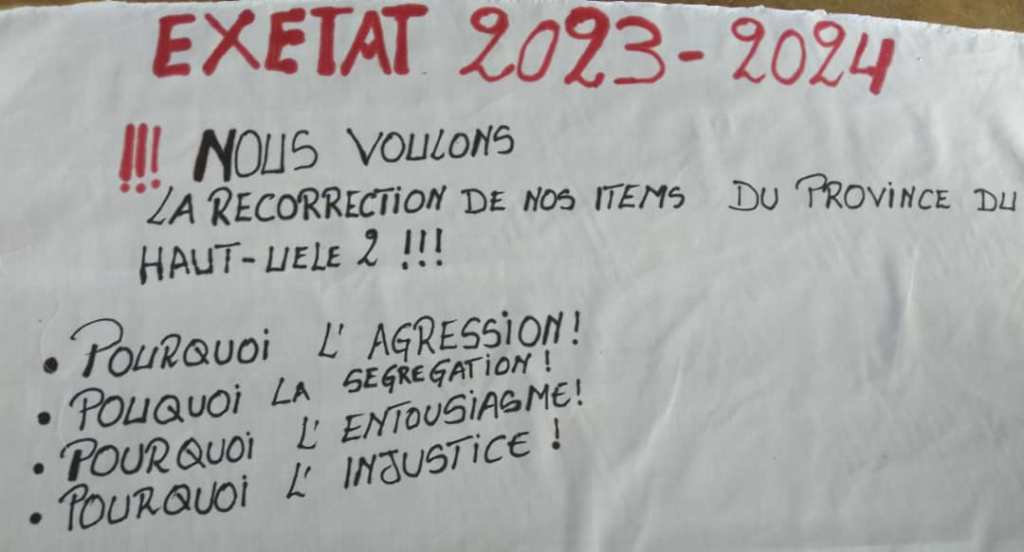 EXETAT 2023-2024
!!! NOUS VOULONS
LA RECORRECTION DE NOS ITEMS DU PROVINCE DU
HAUT-UELE 2 !!!
• POURQUOI L'AGRESSION!
• POUQUOI LA SEGREGATION!
• POURQUOI L'ENTOUSIASME!
• POURQUOI L'INJUSTICE!